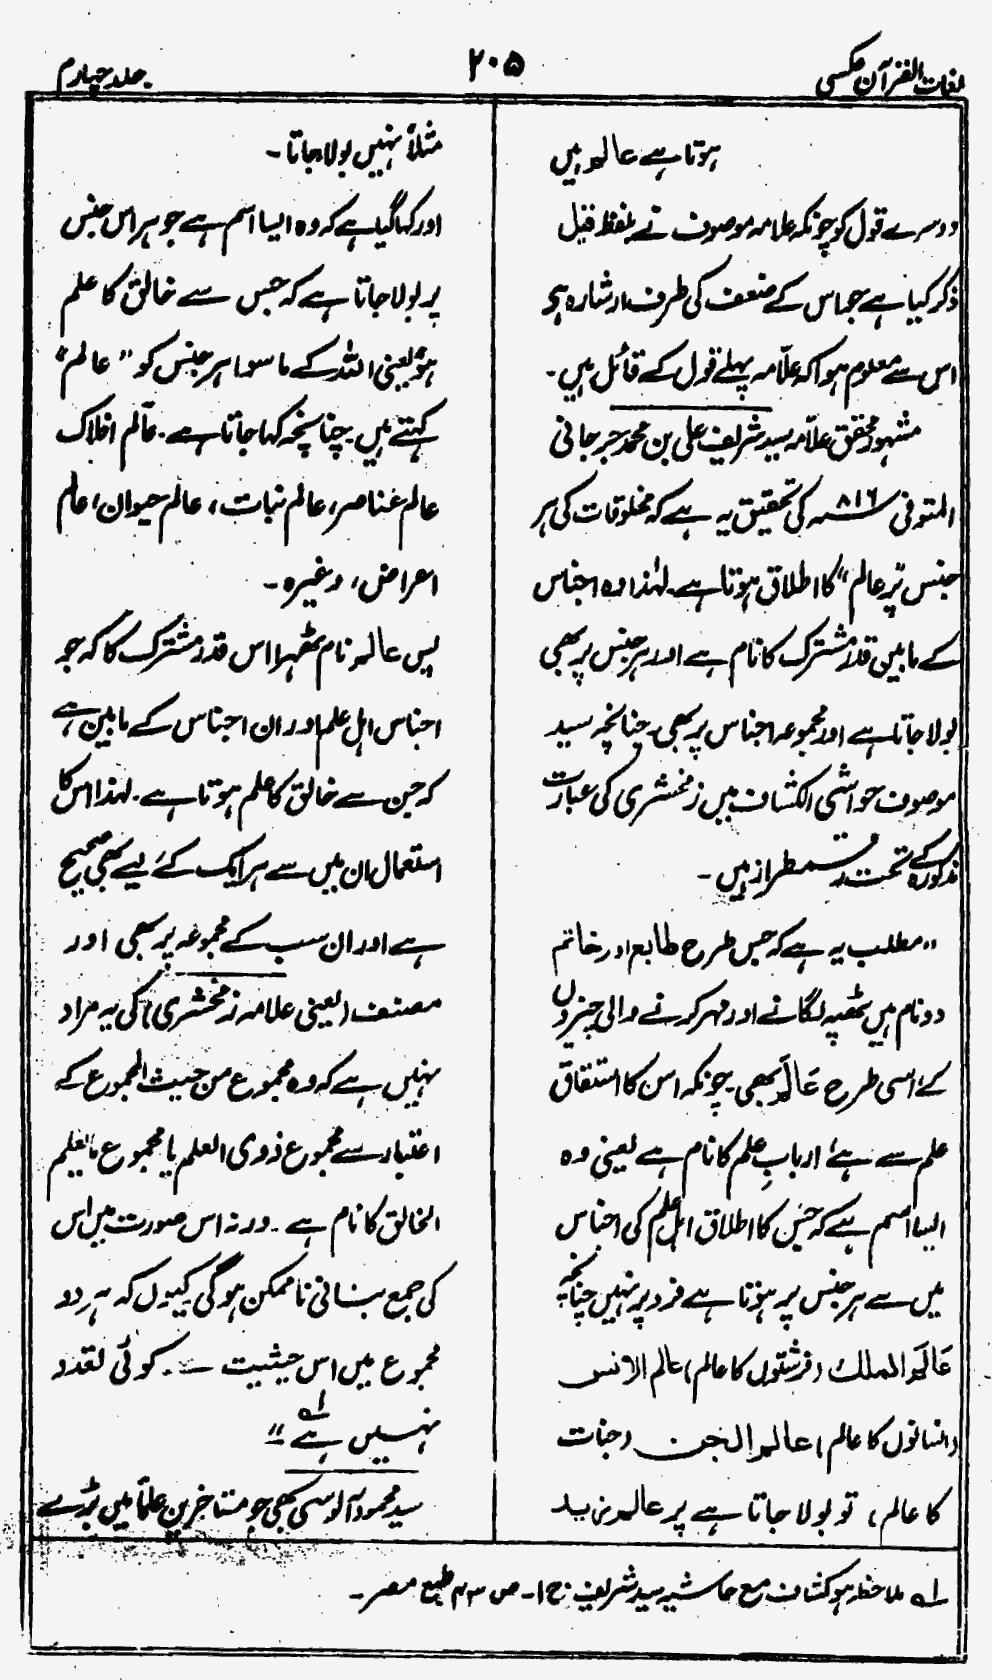 لغات القرآن عکسی
۲۰۵
جلد چہارم
ہوتا ہے عالم میں
دوسرے قول کو چونکہ علامہ موصوف نے بلفظ قیل
ذکر کیا ہے جو اس کے ضعف کی طرف اشارہ ہے
اس سے معلوم ہوا کہ علّامہ پہلے قول کے قائل ہیں۔
مشہور محقق علّامہ سید شریف علی بن محمد جرجانی
المتوفی ۸۱۶ھ کی تحقیق یہ ہے کہ مخلوقات کی ہر
جنس پر "عالم" کا اطلاق ہوتا ہے۔ لہٰذا وہ اجناس
کے مابین قدر مشترک کا نام ہے اور ہر جنس پر بھی
بولا جاتا ہے اور مجموعہ اجناس پر بھی۔ چنانچہ سید
موصوف حواشی الکشاف میں زمخشری کی عبارت
مذکورہ کے تحت رقمطراز ہیں۔
"مطلب یہ ہے کہ جس طرح طابع اور خاتم
دو نام ہیں ٹھپہ لگانے اور مہر کرنے والی چیزوں
کے، اسی طرح عَالَم بھی۔ چونکہ اس کا اشتقاق
علم سے ہے، اربابِ علم کا نام ہے یعنی وہ
ایسا اسم ہے کہ جس کا اطلاق اہل علم کی اجناس
میں سے ہر جنس پر ہوتا ہے فرد پر نہیں چنانچہ
عَالَم الملك (فرشتوں کا عالم) عالم الانس
(انسانوں کا عالم) عالم الجن (جنات
کا عالم) تو بولا جاتا ہے پر عالم زید
مثلاً نہیں بولا جاتا۔
اور کہا گیا ہے کہ وہ ایسا اسم ہے جو ہر اس جنس
پر بولا جاتا ہے کہ جس سے خالق کا علم
ہو، یعنی اللہ کے ماسوا ہر جنس کو "عالم"
کہتے ہیں۔ چنانچہ کہا جاتا ہے۔ عَالَم افلاک
عالم عناصر، عالم نبات، عالم حیوان، عالم
اعراض، وغیرہ۔
پس عالم نام ٹھہرا اس قدر مشترک کا کہ جو
اجناس اہل علم اور ان اجناس کے مابین ہے
کہ جن سے خالق کا علم ہوتا ہے۔ لہٰذا اس کا
استعمال ان میں سے ہر ایک کے لیے بھی صحیح
ہے اور ان سب کے مجموعہ پر بھی اور
مصنف (یعنی علامہ زمخشری) کی یہ مراد
نہیں ہے کہ وہ مجموع من حیث المجموع کے
اعتبار سے مجموع ذوی العلم یا مجموع ما یعلم
الخالق کا نام ہے۔ ورنہ اس صورت میں اس
کی جمع بنانی ناممکن ہو گی کیوں کہ ہر دو
مجموع میں اس حیثیت سے کوئی تعدد
نہیں ہے لہ"
سید محمود آلوسی بھی جو متاخرین علماء میں بڑے
لہ ملاحظہ ہو کشاف مع حاشیہ سید شریف ج ۱۔ ص ۳۴ طبع مصر۔